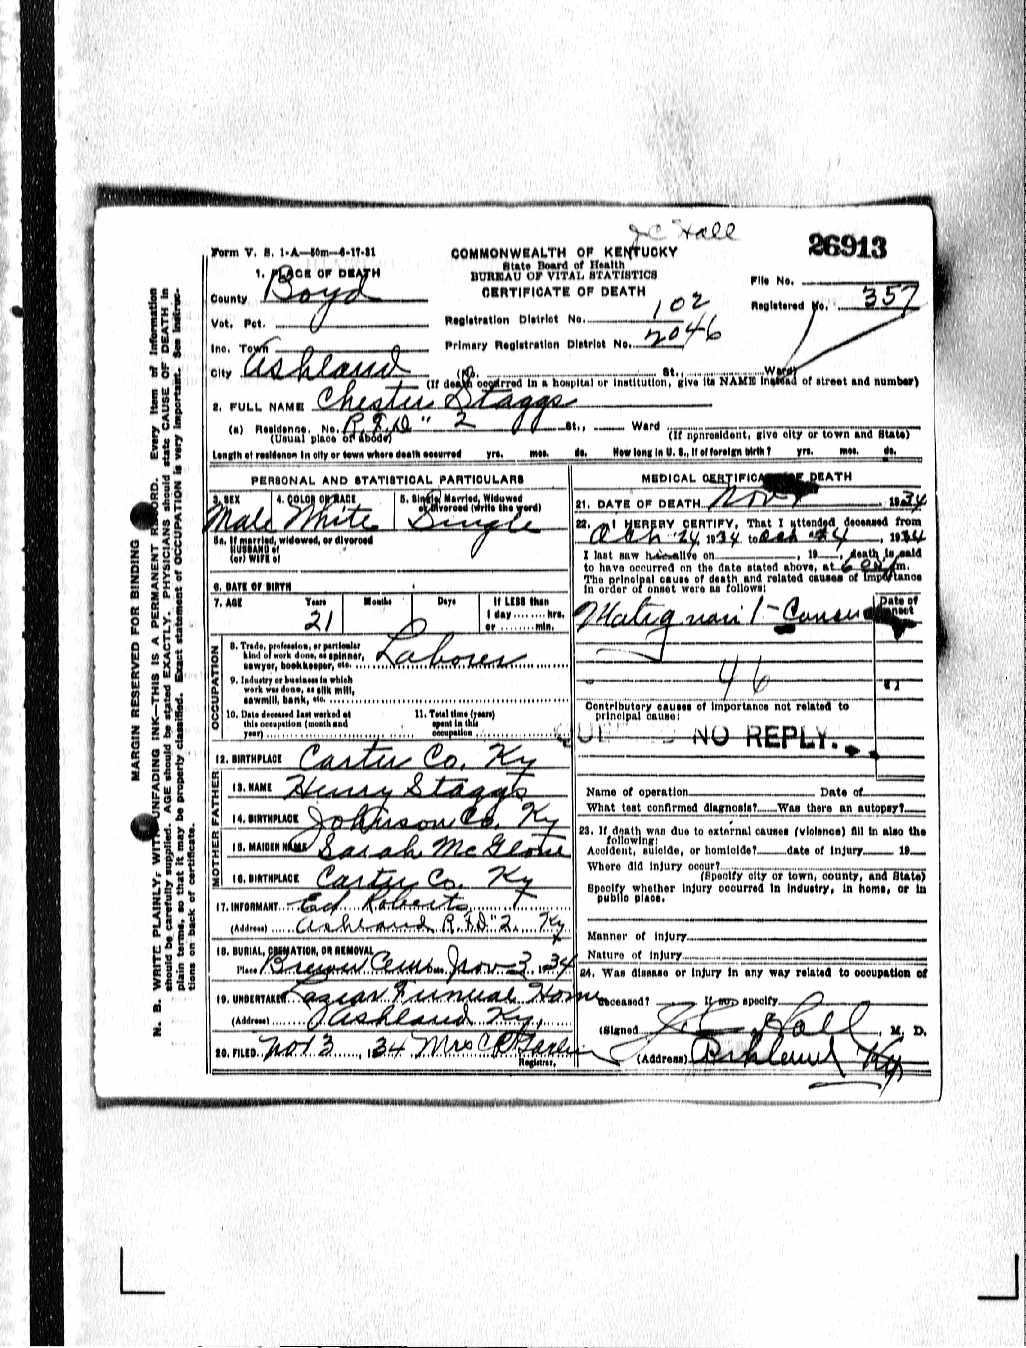 J C Hall
26913
Form V. S. 1-A—50m—6-17-31
COMMONWEALTH OF KENTUCKY
State Board of Health
BUREAU OF VITAL STATISTICS
CERTIFICATE OF DEATH
File No.
Registered No. 357
1. PLACE OF DEATH
County Boyd
Vot. Pct.
Registration District No. 102
Inc. Town
Primary Registration District No. 2046
City Ashland (No. St., Ward)
(If death occurred in a hospital or institution, give its NAME instead of street and number)
2. FULL NAME Chester Staggs
(a) Residence. No. R.F.D " 2 St., Ward
(Usual place of abode) (If nonresident, give city or town and State)
Length of residence in city or town where death occurred yrs. mos. ds. How long in U. S., if of foreign birth? yrs. mos. ds.
PERSONAL AND STATISTICAL PARTICULARS
3. SEX 4. COLOR OR RACE 5. Single, Married, Widowed or Divorced (write the word)
Male White Single
5a. If married, widowed, or divorced
HUSBAND of
(or) WIFE of
6. DATE OF BIRTH
7. AGE Years Months Days If LESS than
21 1 day ........ hrs.
or ........ min.
OCCUPATION
8. Trade, profession, or particular
kind of work done, as spinner,
sawyer, bookkeeper, etc. Laborer
9. Industry or business in which
work was done, as silk mill,
sawmill, bank, etc.
10. Date deceased last worked at
this occupation (month and
year)
11. Total time (years)
spent in this
occupation
12. BIRTHPLACE Carter Co. Ky
FATHER
13. NAME Henry Staggs
14. BIRTHPLACE Johnson Co. Ky
MOTHER
15. MAIDEN NAME Sarah McGlone
16. BIRTHPLACE Carter Co. Ky
17. INFORMANT Ed Roberts
(Address) Ashland R.F.D "2. Ky
18. BURIAL, CREMATION, OR REMOVAL
Place Cem Date Nov 3, 1934
19. UNDERTAKER Lazear Funeral Home
(Address) Ashland Ky.
20. FILED. Nov 3, 34 Mrs
Registrar.
MEDICAL CERTIFICATE OF DEATH
21. DATE OF DEATH Nov 1934
22. I HEREBY CERTIFY, That I attended deceased from
24, 1934 to 24, 1934
I last saw h alive on , 19 , death is said
to have occurred on the date stated above, at 6 m.
The principal cause of death and related causes of importance
in order of onset were as follows:
Date of onset
46
Contributory causes of importance not related to
principal cause:
NO REPLY.
Name of operation Date of
What test confirmed diagnosis? Was there an autopsy?
23. If death was due to external causes (violence) fill in also the
following:
Accident, suicide, or homicide? date of injury 19
Where did injury occur?
(Specify city or town, county, and State)
Specify whether injury occurred in industry, in home, or in
public place.
Manner of injury
Nature of injury
24. Was disease or injury in any way related to occupation of
deceased? If so, specify
(Signed J C Hall, M. D.
(Address) Ashland Ky
MARGIN RESERVED FOR BINDING
N. B. WRITE PLAINLY, WITH UNFADING INK—THIS IS A PERMANENT RECORD. Every item of information
should be carefully supplied. AGE should be stated EXACTLY. PHYSICIANS should state CAUSE OF DEATH in
plain terms, so that it may be properly classified. Exact statement of OCCUPATION is very important. See instruc-
tions on back of certificate.